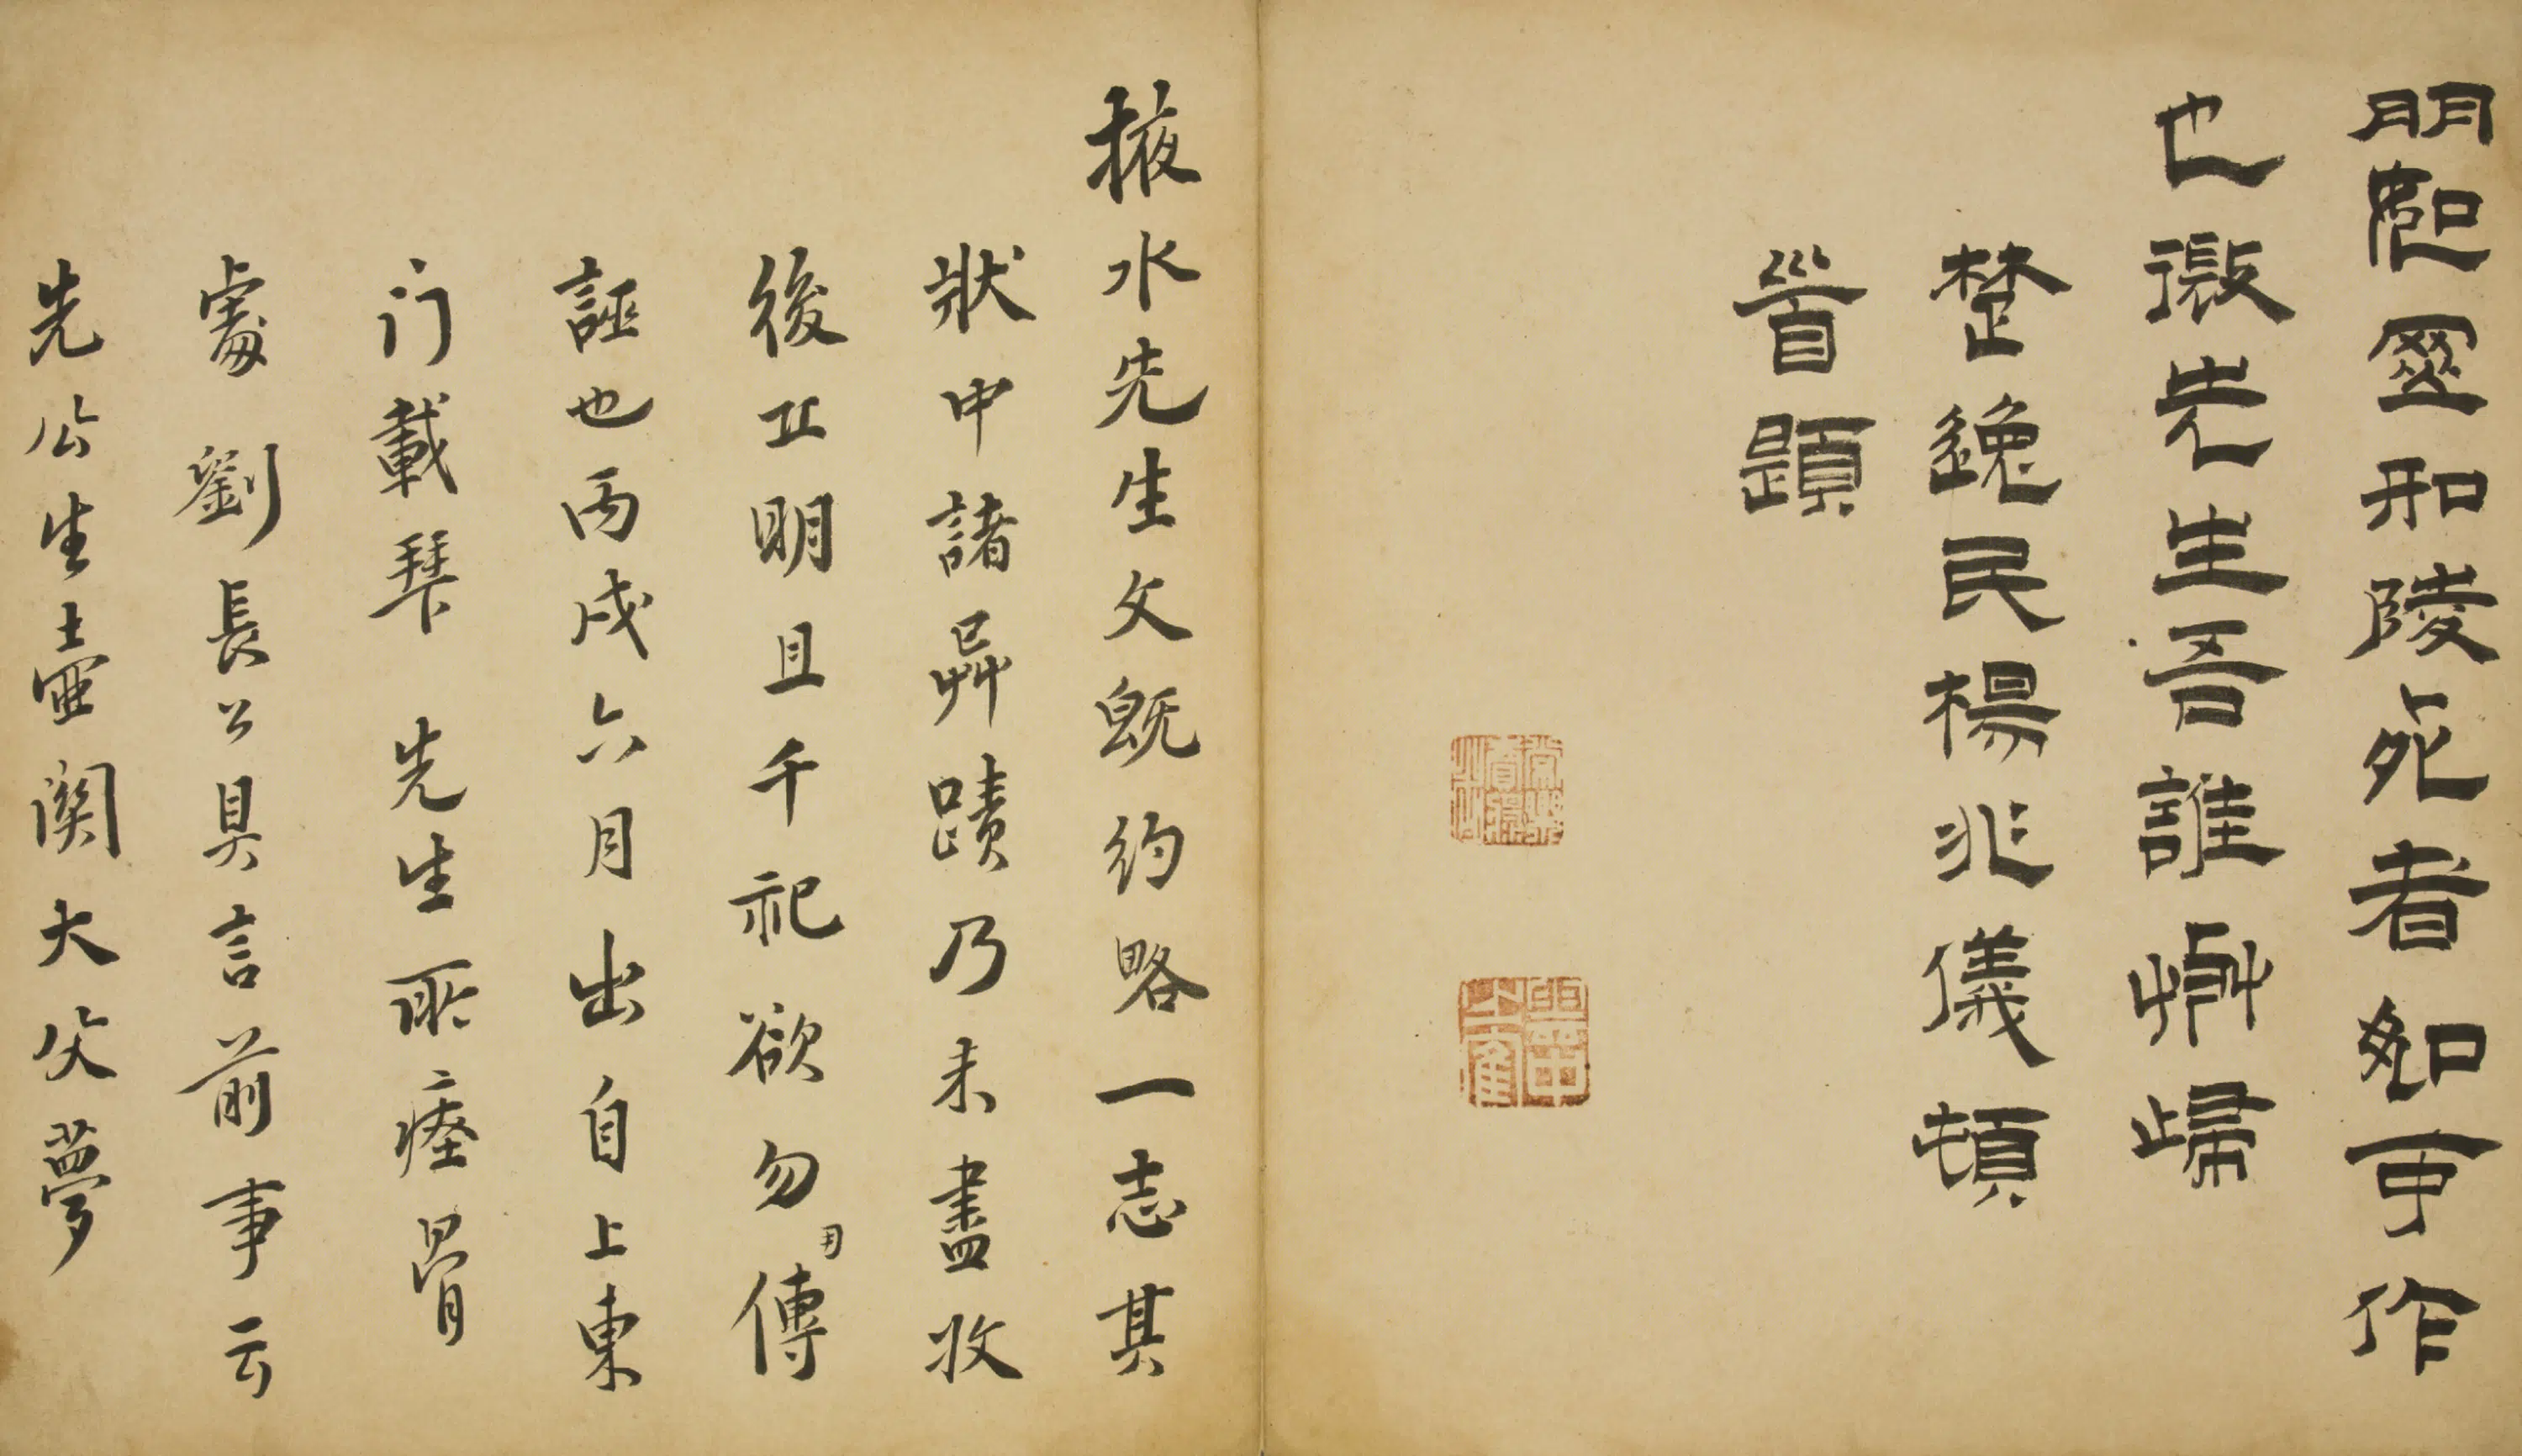 和陵死者如可作
也微先生吾誰與歸
楚逸民楊兆儀頓
首題
掖水先生文既約略一志其
狀申諸异蹟乃未盡收
後丘明且千祀欲勿用傳
誣也丙戌六月出自上東
门載琴 先生所瘞骨
處劉長公具言前事云
先公生壺関大父夢